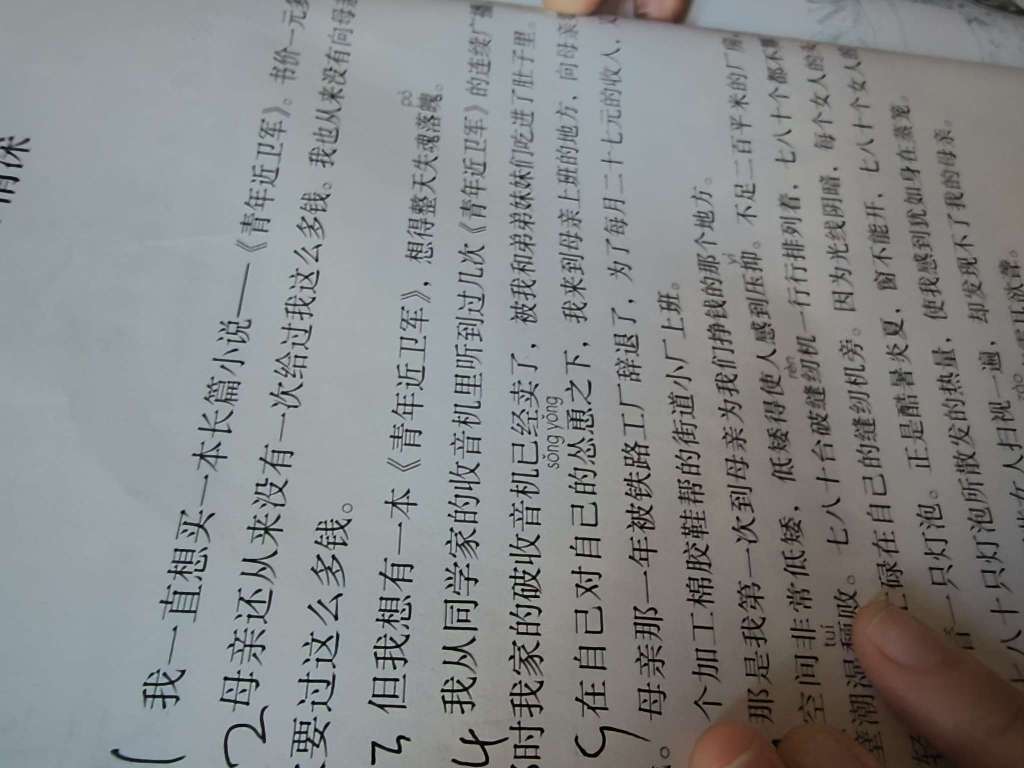 1 我一直想买一本长篇小说——《青年近卫军》。书价一元多
2 母亲还从来没有一次给过我这么多钱。我也从来没有向母亲
要过这么多钱。
3 但我想有一本《青年近卫军》，想得整天失魂落魄。
pò
4 我从同学家的收音机里听到过几次《青年近卫军》的连续广播
时我家的破收音机已经卖了，被我和弟弟妹妹们吃进了肚子里。
sǒng yǒng
5 在自己对自己的怂恿之下，我来到母亲上班的地方，向母亲
母亲那一年被铁路工厂辞退了，为了每月二十七元的收入，
个加工棉胶鞋鞋帮的街道小厂上班。
yì
那是我第一次到母亲为我们挣钱的那个地方。
空间非常低矮，低矮得使人感到压抑。不足二百平米的厂房，
tuí
rèn
壁潮湿颓败。七八十台破缝纫机一行行排列着，七八十个都不
碌在自己的缝纫机旁。因为光线阴暗，每个女人的
一只灯泡。正是酷暑炎夏，窗不能开，七八十个女人的
七八十只灯泡所散发的热量，使我感到犹如身在蒸笼。
女人扫视一遍，却发现不了我的母亲。